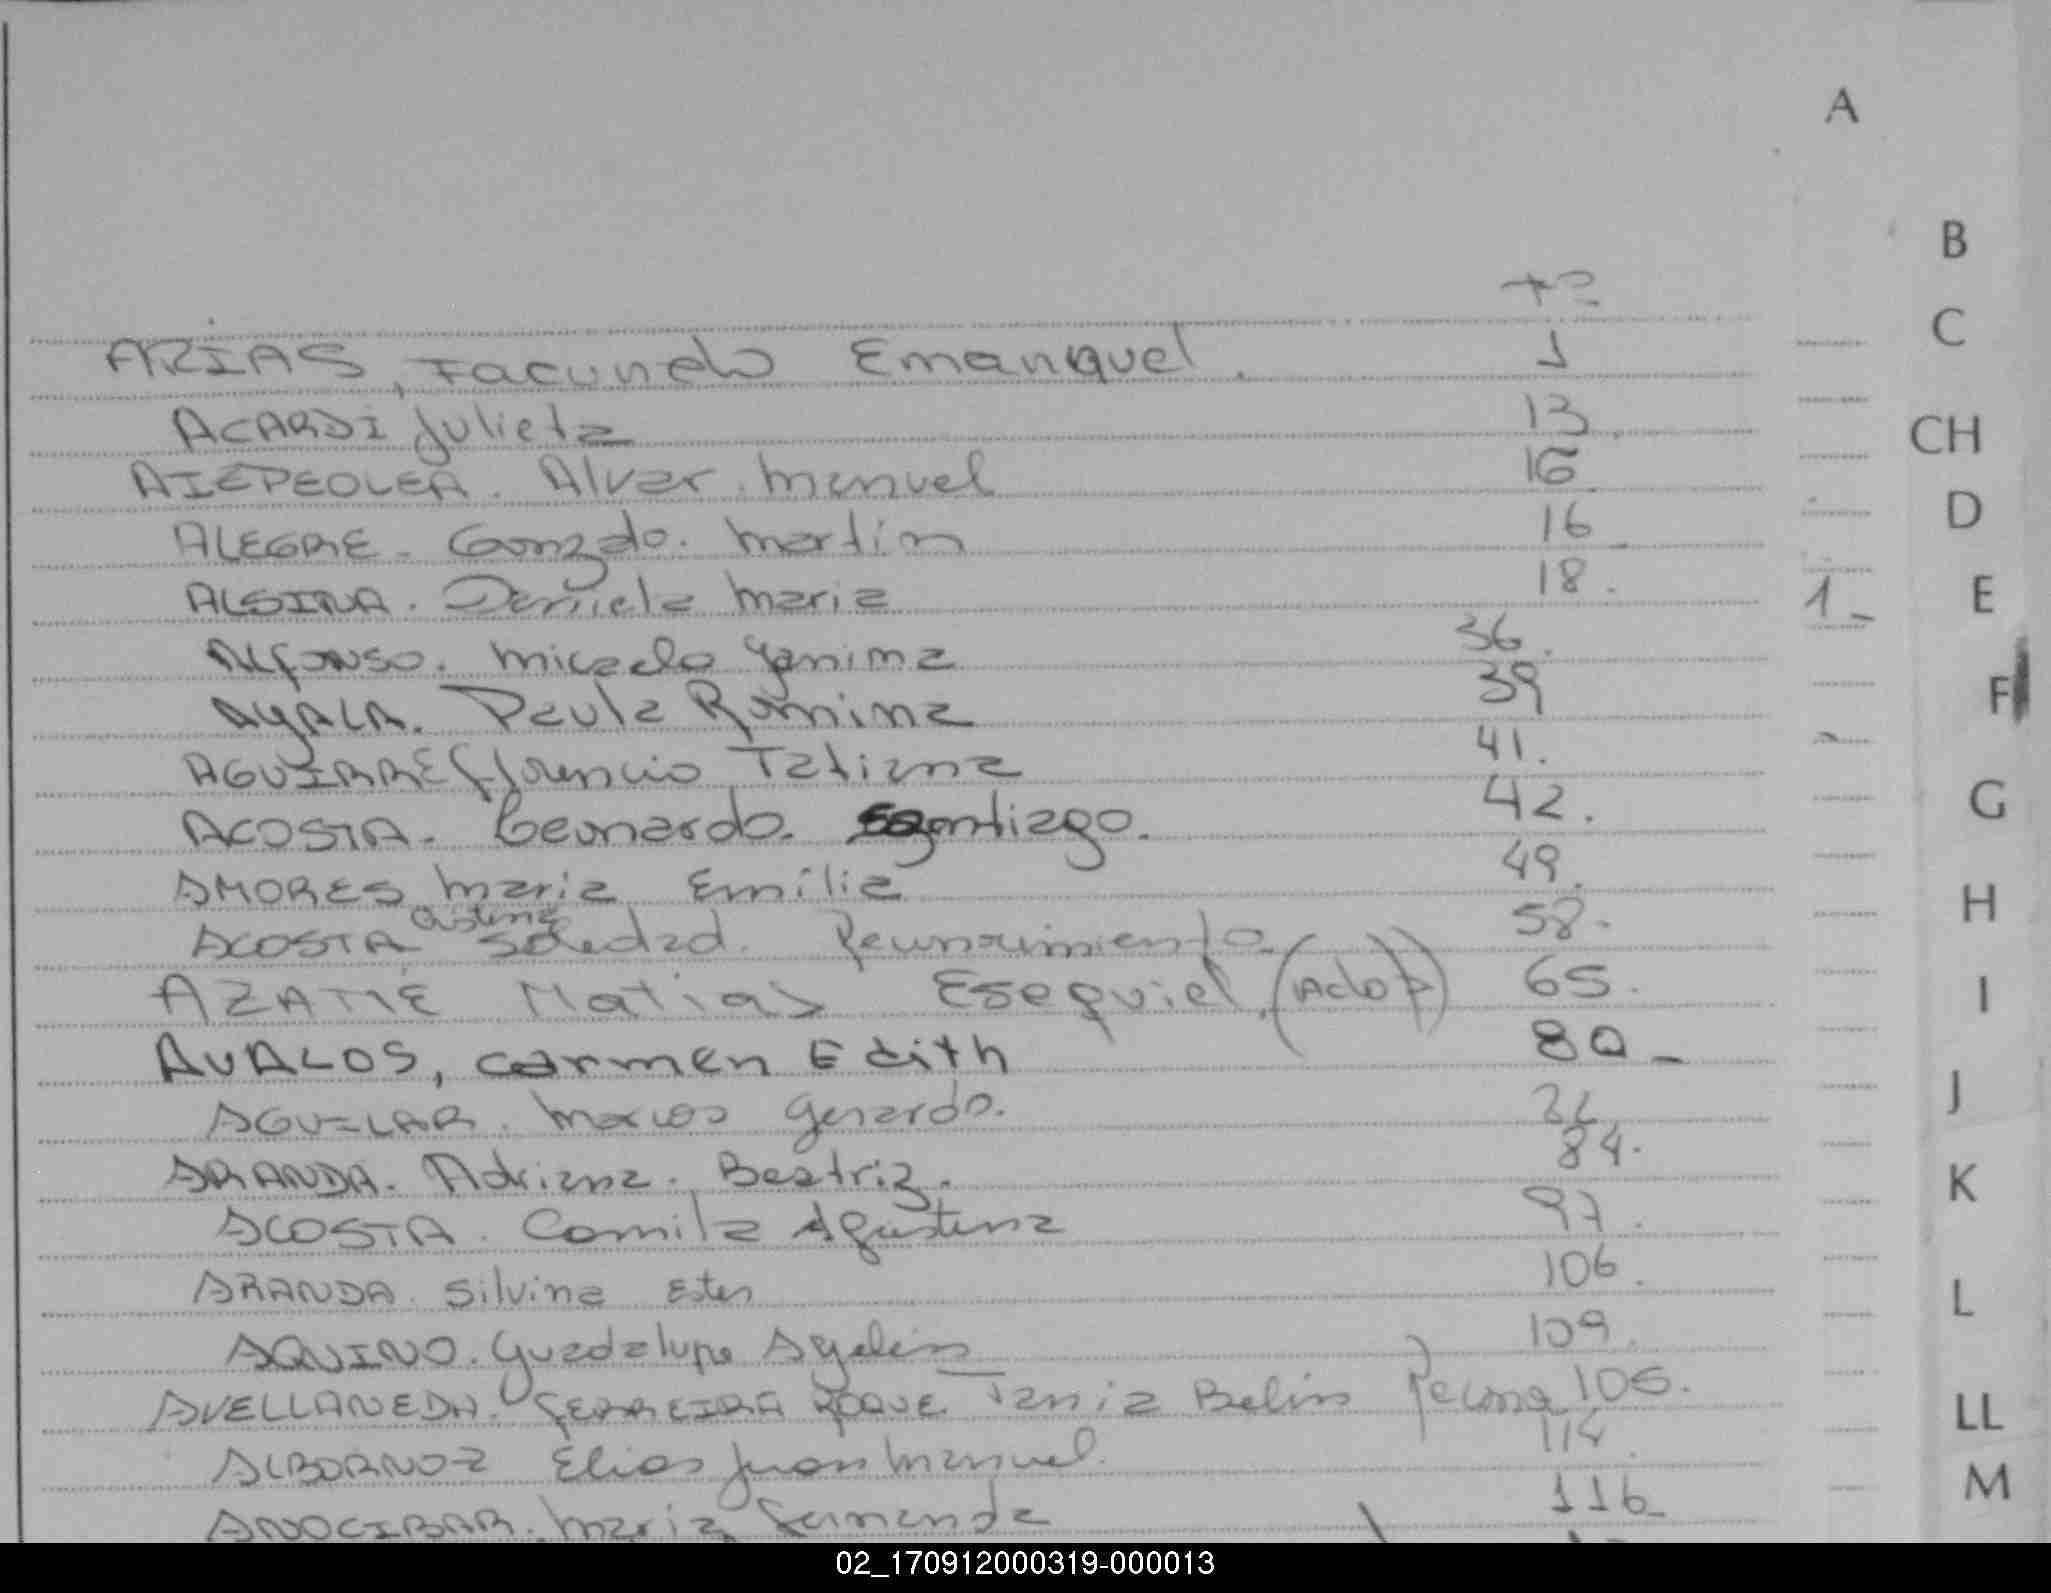 A
B
Fº
C
ARIAS, Facundo Emanquel. 1
ACARDI Julieta 13
CH
Alvar. Manuel 16
D
ALEGRE. Gonzalo. Martín 16
ALSINA. Daniela Maria 18.
1-
E
ALFONSO. Micaela Yanina 36.
AYALA. Paula Romina 39
F
AGUIRRE Florencia Tatiana 41.
G
ACOSTA. Leonardo. Santiago. 42.
AMORES Maria Emilia 49.
H
ACOSTA Cristina Soledad. Reconocimiento 58.
AZAME Matias Esequiel, (Adop) 65.
I
AVALOS, Carmen Edith 80-
J
AGUILAR. Marcos Gerardo.
ARANDA. Adriana. Beatriz. 84.
K
ACOSTA. Camila Agustina 97.
ARANDA. Silvina Ester 106.
L
AQUINO. Guadalupe Ayelen 109.
AVELLANEDA. FERREIRA ROQUE Tania Belén 105.
LL
ALBORNOZ Elias Juan Manuel. 114.
M
ANOCIBAR. Maria Fernanda 116-
02_170912000319-000013